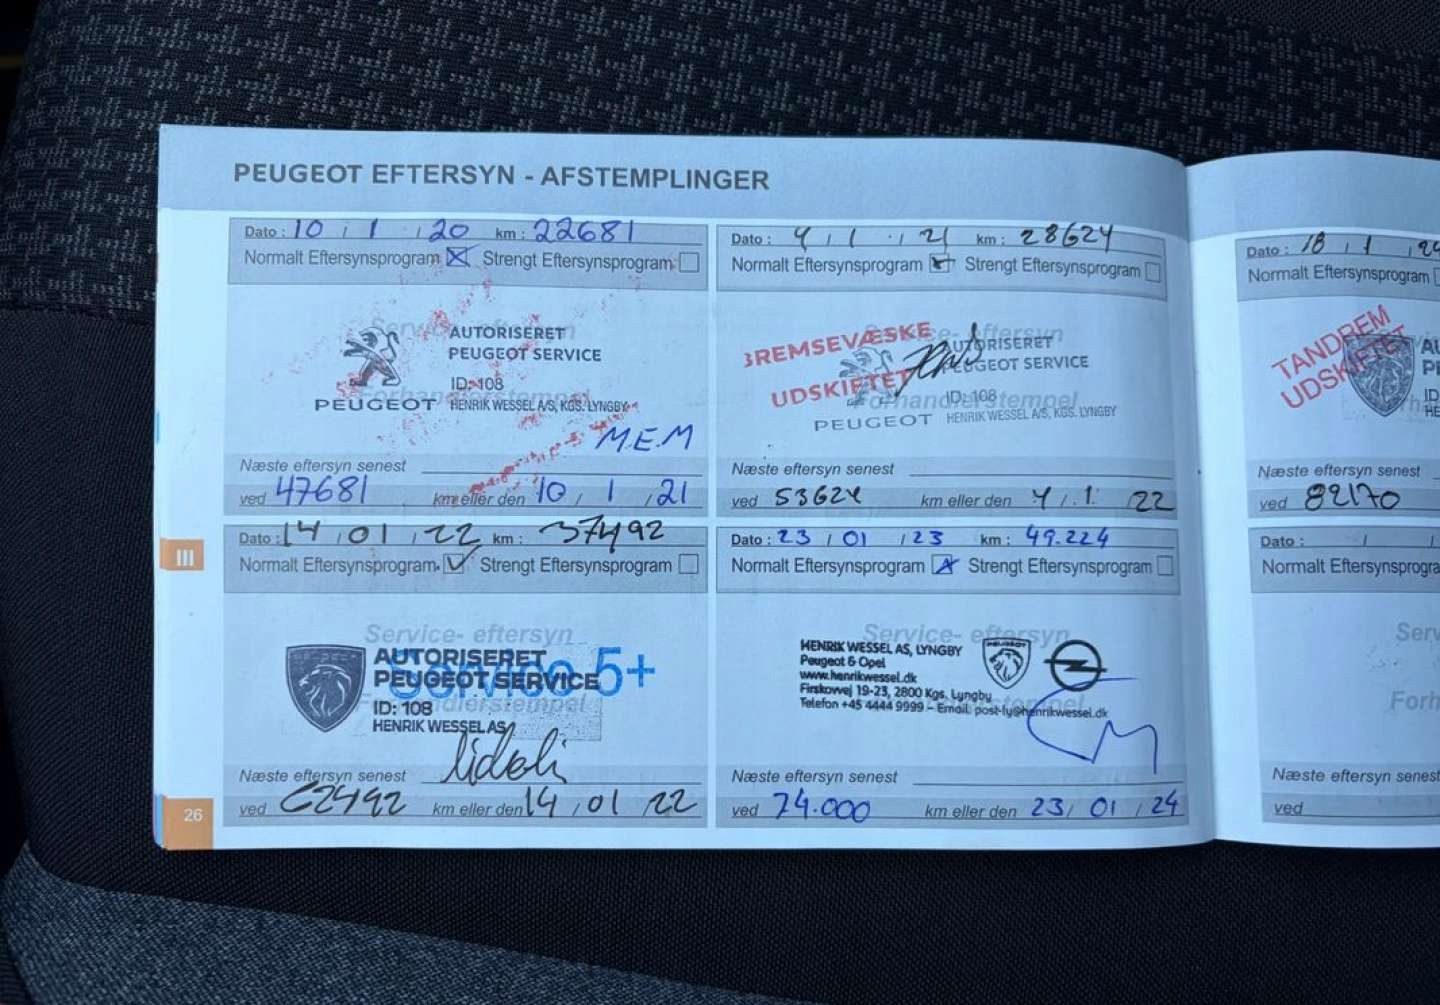 PEUGEOT EFTERSYN - AFSTEMPLINGER
Dato: 10 / 1 / 20 km: 22681
Normalt Eftersynsprogram Strengt Eftersynsprogram
Service- eftersyn
AUTORISERET
PEUGEOT SERVICE
ID: 108
Forhandlerstempel
PEUGEOT HENRIK WESSEL A/S, KGS. LYNGBY
M.E.M
Næste eftersyn senest
ved 47681 km eller den 10 / 1 / 21
Dato: 4 / 1 / 21 km: 28624
Normalt Eftersynsprogram Strengt Eftersynsprogram
Service- eftersyn
BREMSEVÆSKE
UDSKIFTET
AUTORISERET
PEUGEOT SERVICE
ID: 108
Forhandlerstempel
PEUGEOT HENRIK WESSEL A/S, KGS. LYNGBY
Næste eftersyn senest
ved 53624 km eller den 4 / 1 / 22
III
Dato: 14 / 01 / 22 km: 37492
Normalt Eftersynsprogram Strengt Eftersynsprogram
Service- eftersyn
AUTORISERET
PEUGEOT SERVICE
Service 5+
ID: 108
Forhandlerstempel
HENRIK WESSEL AS
Næste eftersyn senest
ved 62492 km eller den 14 / 01 / 22
Dato: 23 / 01 / 23 km: 49.224
Normalt Eftersynsprogram Strengt Eftersynsprogram
Service- eftersyn
HENRIK WESSEL AS, LYNGBY
Peugeot & Opel
www.henrikwessel.dk
Firskovvej 19-23, 2800 Kgs. Lyngby
Telefon +45 4444 9999 - Email: post-ly@henrikwessel.dk
PEUGEOT
Næste eftersyn senest
ved 74.000 km eller den 23 / 01 / 24
26
Dato: 18 / 1 / 24
Normalt Eftersynsprogram
TANDREM
UDSKIFTET
AU
ID
HE
Næste eftersyn senest
ved 82170
Dato: / /
Normalt Eftersynsprogra
Serv
Forh
Næste eftersyn senest
ved